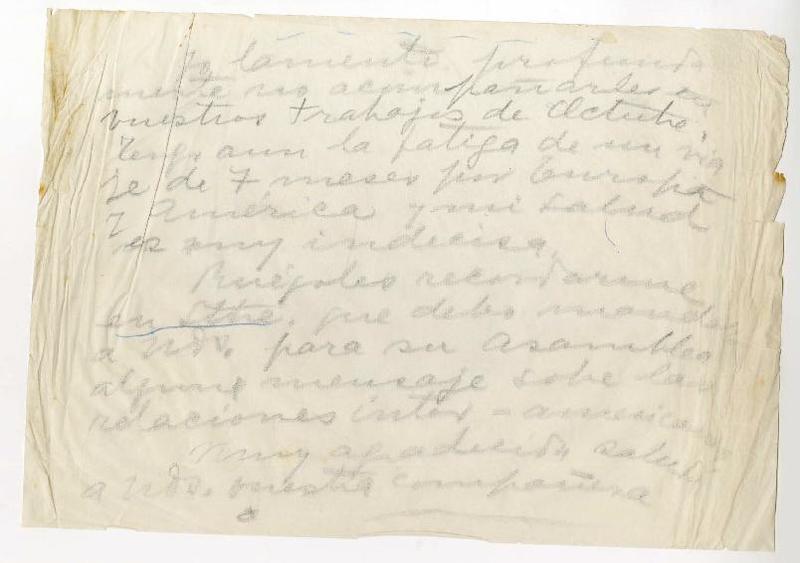 Yo lamento profunda
mente no acompañarles en
vuestros trabajos de Octubre.
Tengo aun la fatiga de un via
je de 7 meses por Europa
y America y mi salud
es muy indecisa.
Ruégoles recordarme
en Stbre. que debo mandar
a Uds. para su asamblea
algun mensaje sobre las
relaciones inter-americanas
Muy agradecida saluda
a Uds. vuestra compañera